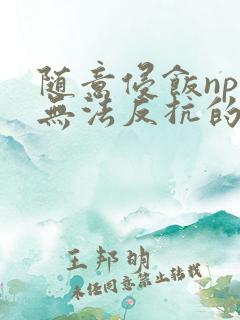 随意侵飯np
無法反抗的
王邦明
未经同意禁止转载